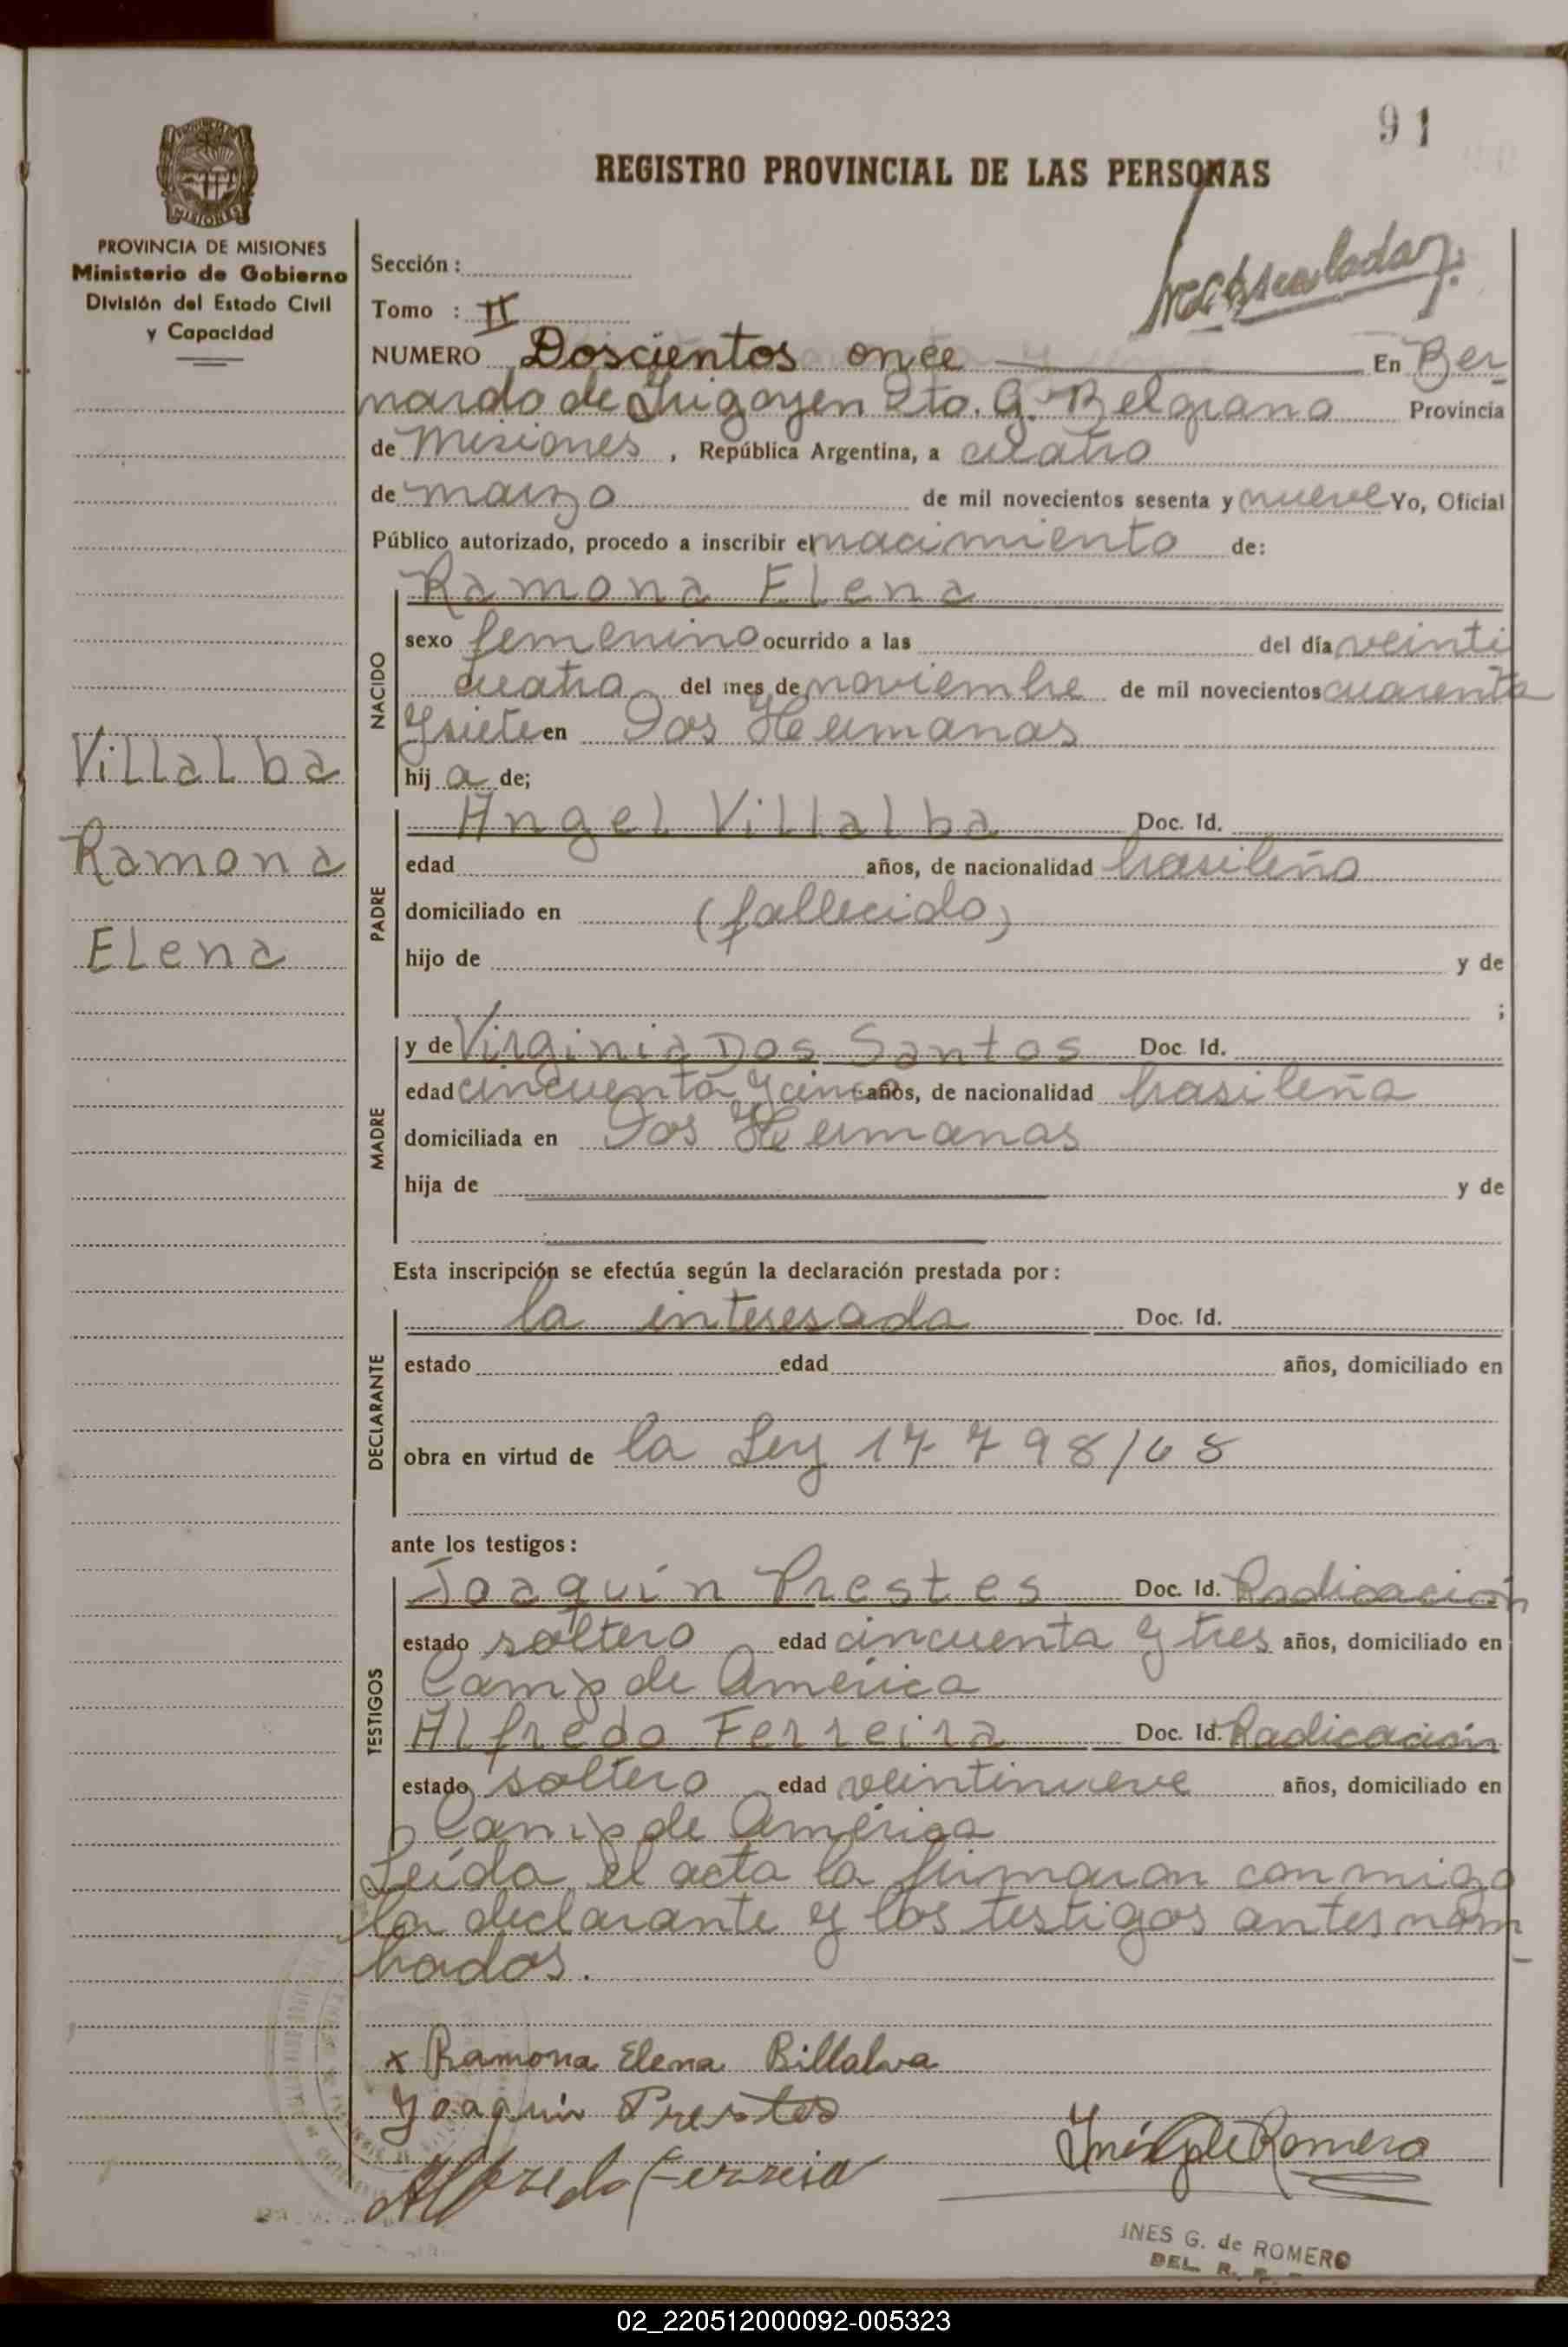 91
REGISTRO PROVINCIAL DE LAS PERSONAS
MISIONES
PROVINCIA DE MISIONES
Ministerio de Gobierno
División del Estado Civil
y Capacidad
Sección :
Tomo : II
NUMERO Doscientos once En Ber-
nardo de Irigoyen Dto. G. Belgrano Provincia
de Misiones, República Argentina, a cuatro
de marzo de mil novecientos sesenta y nueve Yo, Oficial
Público autorizado, procedo a inscribir el nacimiento de:
NACIDO
Ramona Elena
sexo femenino ocurrido a las del día veinti
cuatro del mes de noviembre de mil novecientos cuarenta
y siete en Dos Hermanas
hij a de;
Villalba
Ramona
Elena
PADRE
Angel Villalba Doc. Id.
edad años, de nacionalidad brasileño
domiciliado en (fallecido)
hijo de y de
;
MADRE
y de Virginia Dos Santos Doc. Id.
edad cincuenta y cinco años, de nacionalidad brasileña
domiciliada en Dos Hermanas
hija de y de
Esta inscripción se efectúa según la declaración prestada por :
DECLARANTE
la interesada Doc. Id.
estado edad años, domiciliado en
obra en virtud de la Ley 17798/68
ante los testigos :
TESTIGOS
Joaquín Prestes Doc. Id. Radicación
estado soltero edad cincuenta y tres años, domiciliado en
de América
Alfredo Ferreira Doc. Id. Radicación
estado soltero edad veintinueve años, domiciliado en
de América
Leída el acta la firmaron conmigo
la declarante y los testigos antes nom-
brados.
x Ramona Elena Billalva
Joaquin Prestes
Alfredo Ferreira
Inés G de Romero
INES G. de ROMERO
DEL. R. P.
02_220512000092-005323